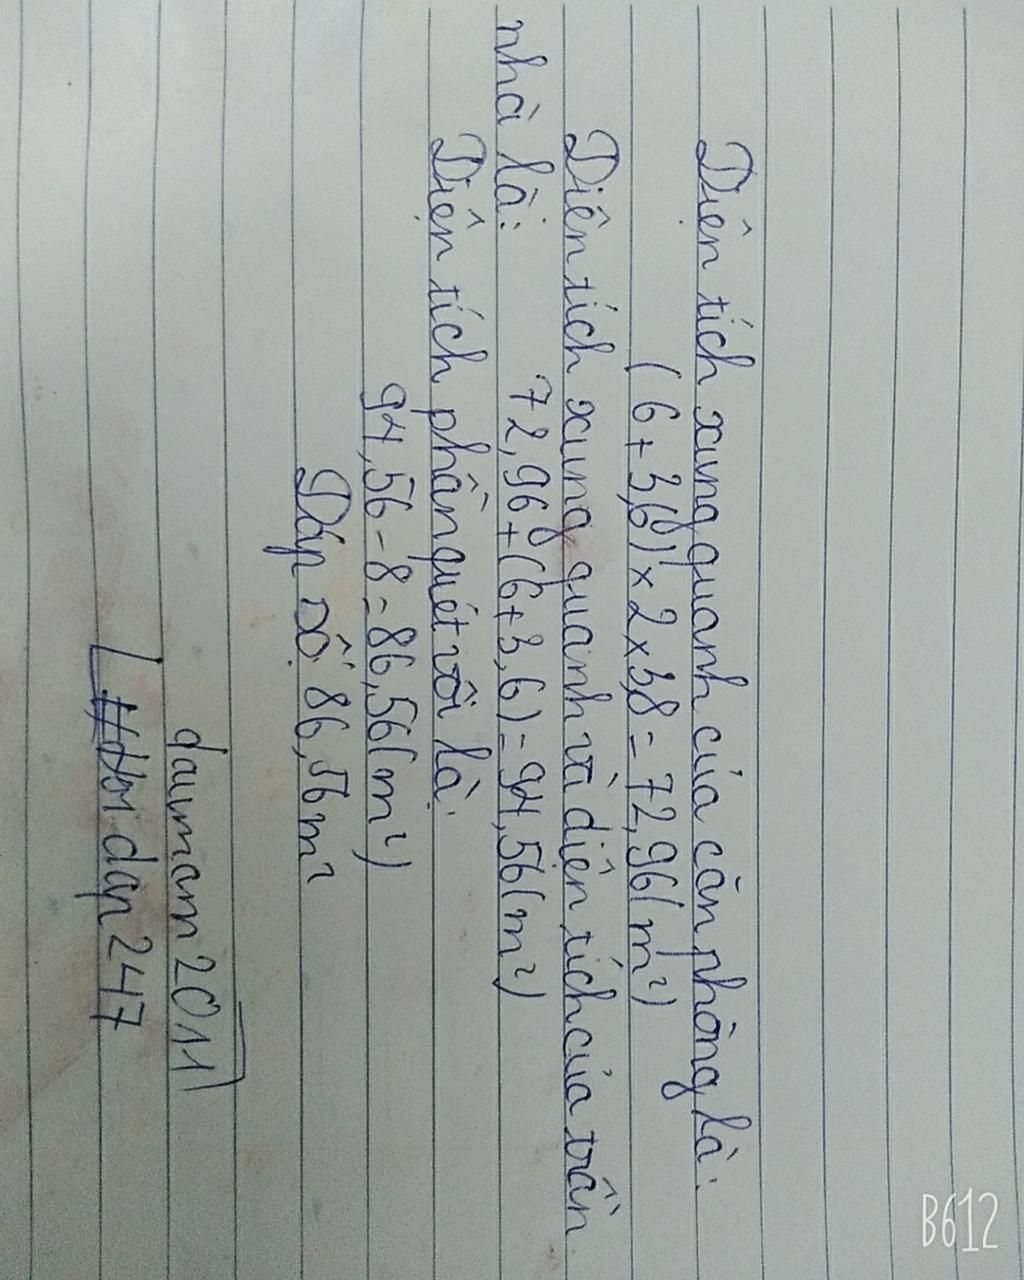 Diện tích xung quanh của căn phòng là:
(6+3,6)×2×3,8=72,96(m²)
Diện tích xung quanh và diện tích của trần
nhà là: 72,96+(6+3,6)=94,56(m²)
Diện tích phần quét vôi là:
94,56-8=86,56(m²)
Đáp số: 86,56m²
daimam2011
#Hoidap247
B612